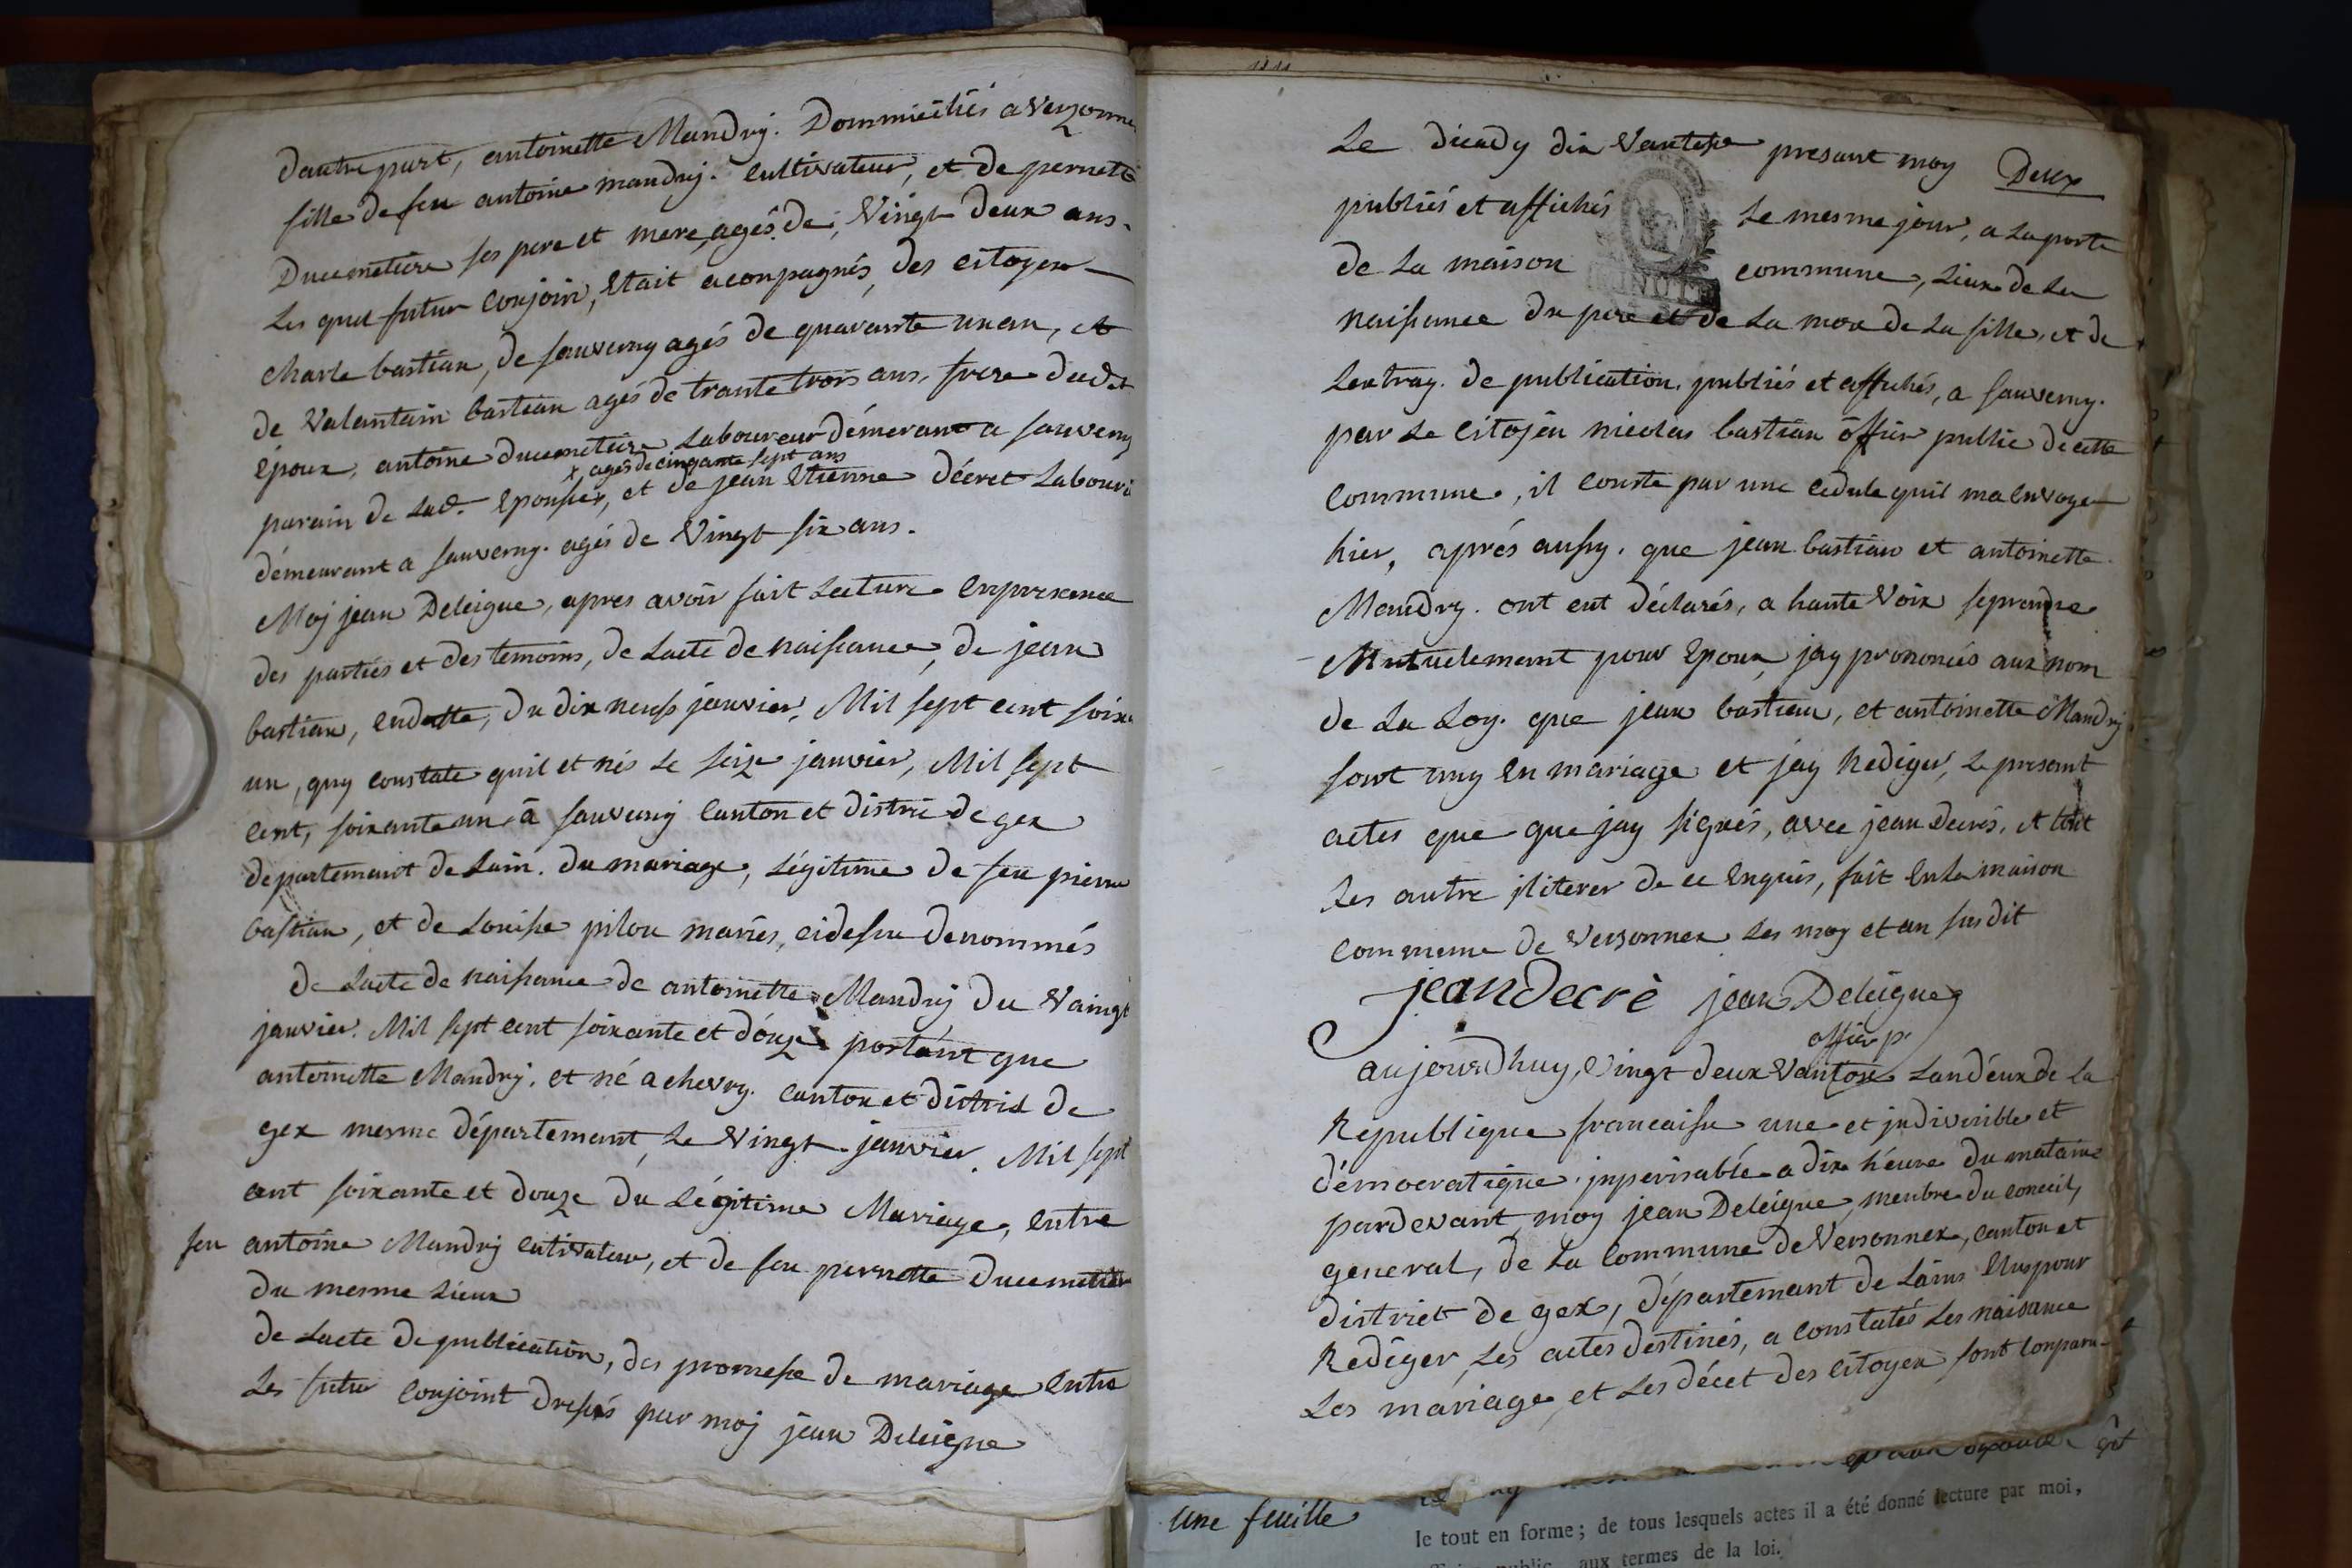 dautre part, antoinette Mandry. Dommiciliés a Verzonne
fille de feu antoine mandry. cultivateur, et de pernette
Ducimetiere ses pere et mere, agés de, Vingt deux ans.
Les quel futur conjoin, Etait aconpagnés, des citoyen
charle bastian, de sauverny agés de quarante un an, et
de Valantain bastian agés de trante trois ans, frere dudt
époux, antoine ducimetiere Laboureur démeurant a sauverny
x agés de cinqante sept ans
parain de Lad. Epousse, et de jean Etienne décret Labour
démeurant a sauverny. agés de Vingt six ans.
Moj jean Deleigue, apres avoir fait Lecture enpresence
des parties et des temoins, de Lacte de naissance, de jean
bastian, endatte, du dix neuf janvier, Mil sept cent soixa
un, quy constate quil et nés le seize janvier, Mil sept
cent, soixante un à sauverny canton et distric de gex
departemant de Lain. du mariage, Légitime de feu pierre
bastian, et de Louise pilou mariés, cidessu denommés
de Lacte de naissance de antoinette Mandrij du Vaingt
janvier. Mil sept cent soixante et douze portant que
antoinette Mandrij. et né a chevry. canton et district de
gex mesme département, Le Vingt janvier. Mil sept
cent soixante et douze du Légitime Mariage, entre
feu antoine Mandrij cutivateur, et de feu pernette Ducemetier
du mesme Lieux
de Lacte de publication, des promesse de mariage Entre
Les futur conjoint dressés par moj jean Deleigue
Le dicady dix Vantose presant moy Deux
publiés et affichés Le mesme jour, a La porte
de La maison commune, Lieux de La
MINUTE
naissance du pere et de La mere de La fille, et de
Lextray. de publication. publiés et affichés, a sauverny.
par Le citojen nicolas bastian offier public de cette
commune, il conste par une cedule quil ma envoye
hier, aprés aussy. que jean bastian et antoinette
Mandry. ont ent déclarés, a haute Voix seprendre
Mutuelemant pour Epoux, jay prononcés aux nom
de La Loy. que jean bastian, et antoinette Mandrij
sont uny en mariage et jay Rediger, Le presant
actes que que jay signés, avec jean decrés, et tout
Les autre jliterer de ce enquis, fait en La maison
commune de Versonnex Les moy et an susdit
jean decrè jean Deleigue
offier p.
aujourdhuy, Vingt deux Vantose Landeux de La
Republique francaisse une et jndivisible et
démocratique. jnperisable a dix héure du mataine
pardevant moy jean Deleigue menbre du conceil,
general, de La commune de Versonnex, canton et
district de gex, département de Lains Elus pour
Rediger Les actes destinés, a constatés Les naisance
Les mariage et Les décet des citoyen sont conparu
une feuille
le tout en forme ; de tous lesquels actes il a été donné lecture par moi,
public aux termes de la loi.